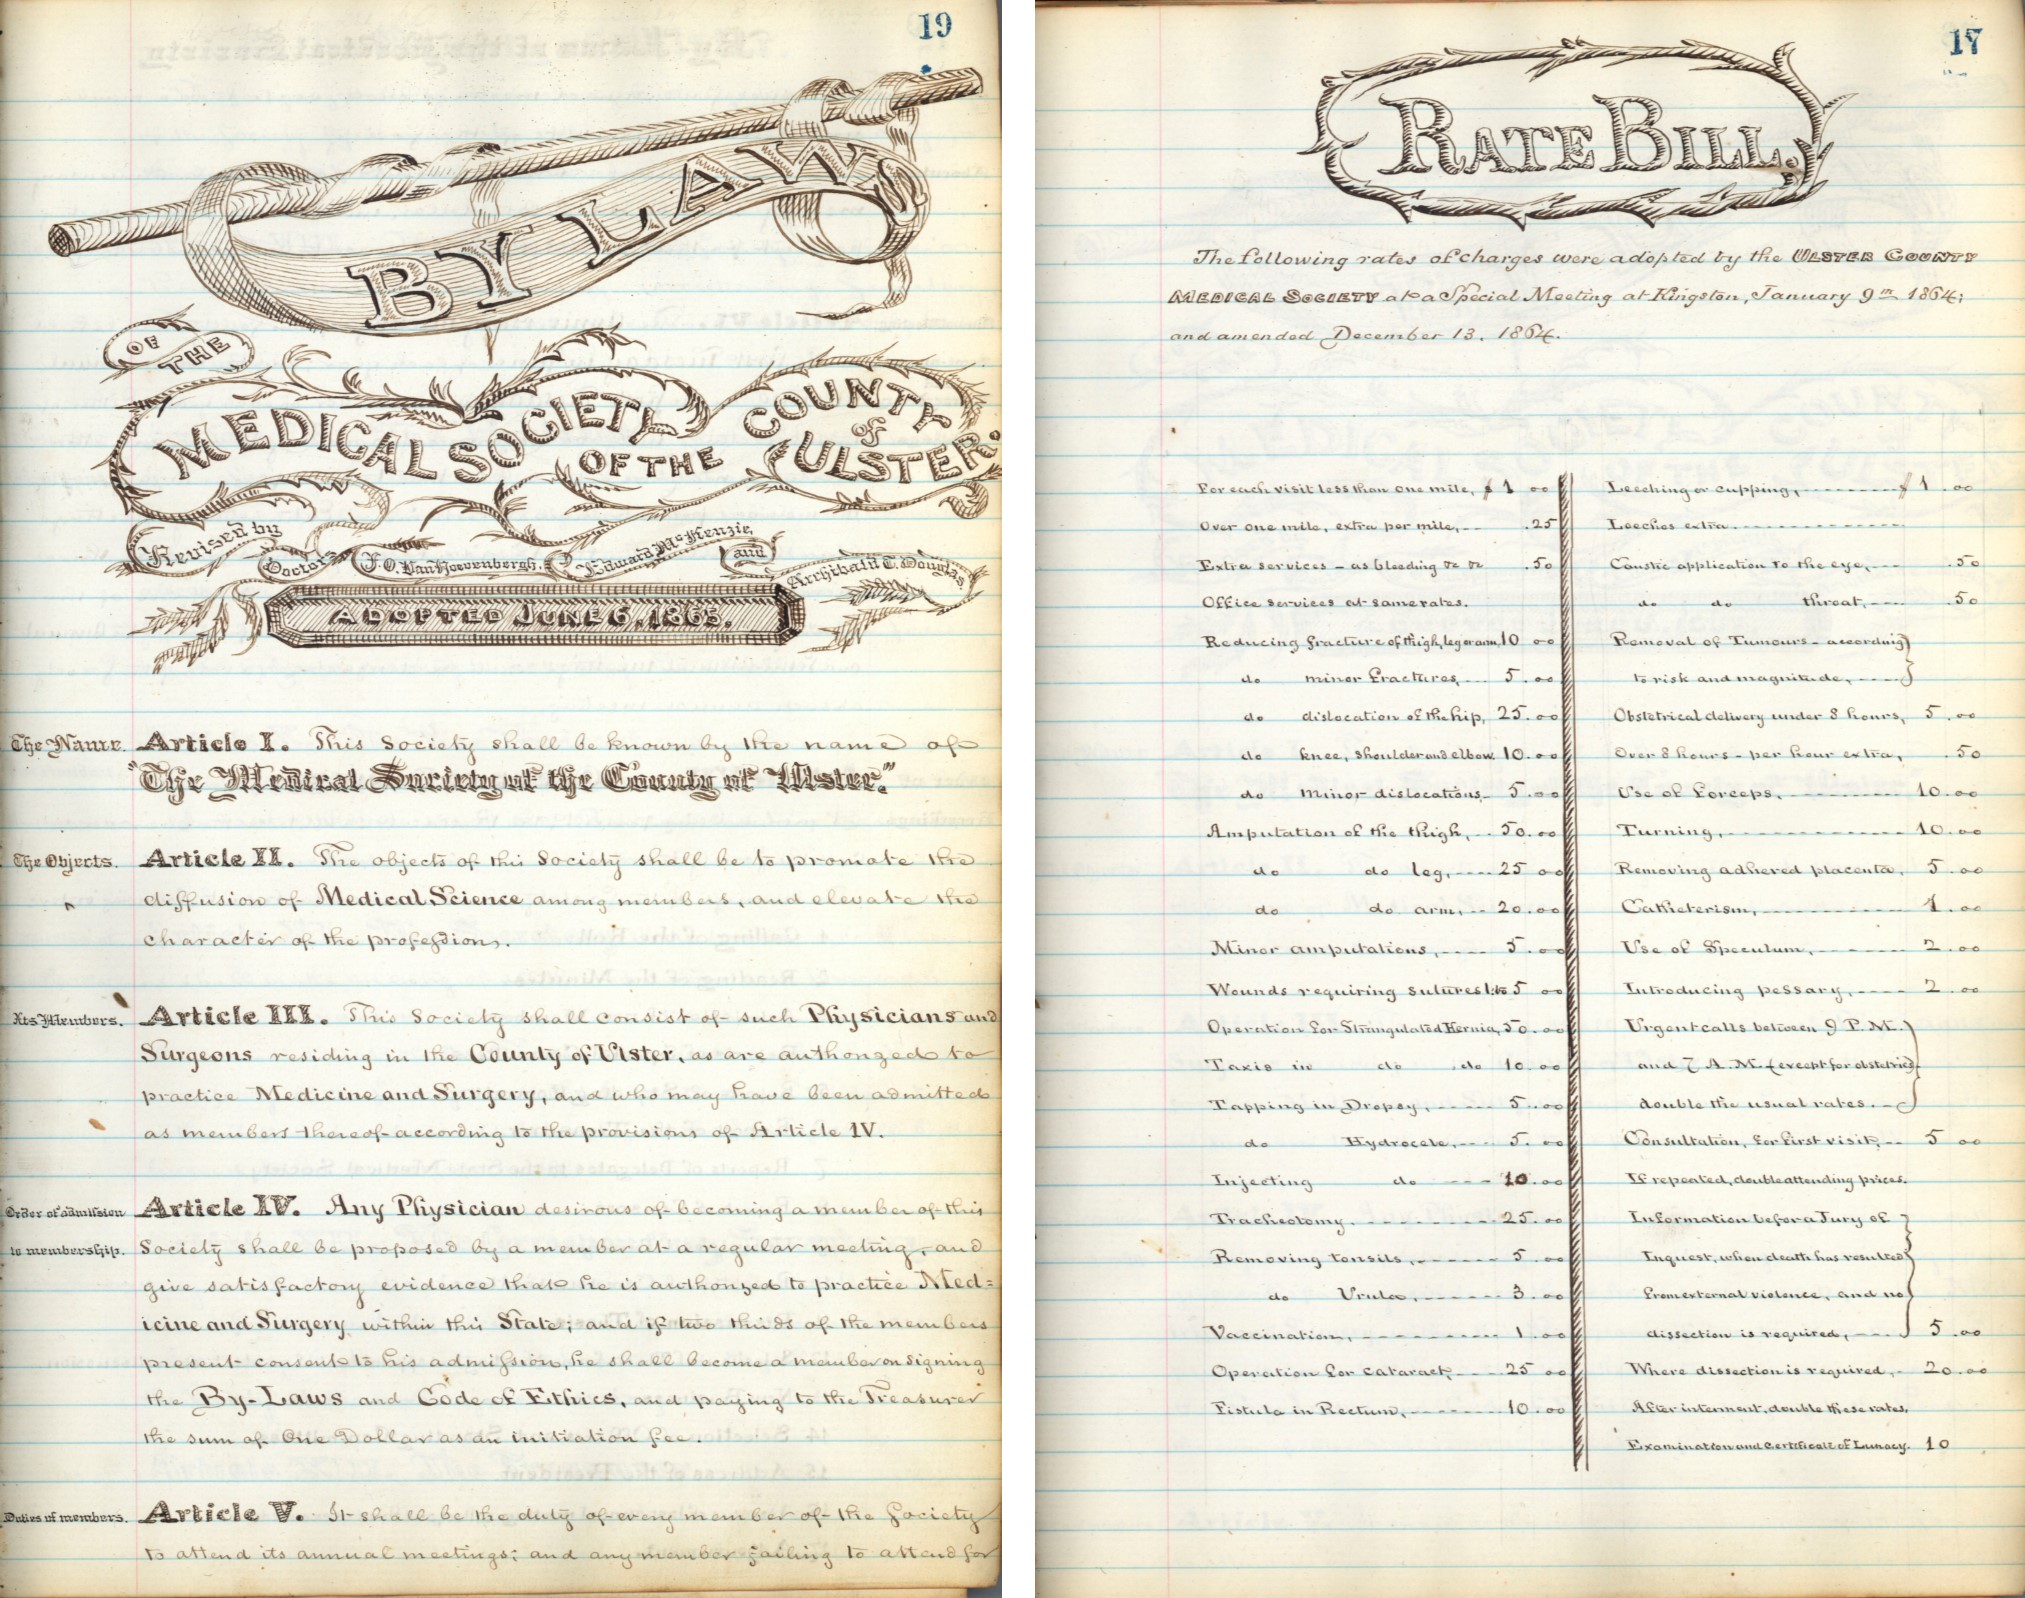 19
BY LAWS
OF THE
MEDICAL SOCIETY OF THE COUNTY of ULSTER.
Revised by Doctors J. O. VanHoevenbergh, Edward McKenzie, and Archibald T. Douglas
ADOPTED JUNE 6, 1865.
The Name. Article I. This Society shall be known by the name of
"The Medical Society of the County of Ulster."
The Objects. Article II. The objects of this Society shall be to promote the
diffusion of Medical Science among members, and elevate the
character of the profession.
Its Members. Article III. This Society shall consist of such Physicians and
Surgeons residing in the County of Ulster, as are authorized to
practice Medicine and Surgery, and who may have been admitted
as members thereof according to the provisions of Article IV.
Order of admission Article IV. Any Physician desirous of becoming a member of this
to membership. Society shall be proposed by a member at a regular meeting, and
give satisfactory evidence that he is authorized to practice Med=
icine and Surgery within this State; and if two thirds of the members
present consent to his admission, he shall become a member on signing
the By-Laws and Code of Ethics, and paying to the Treasurer
the sum of One Dollar as an initiation fee.
Duties of members. Article V. It shall be the duty of every member of the Society
to attend its annual meetings; and any member failing to attend for
17
RATE BILL.
The following rates of charges were adopted by the ULSTER COUNTY
MEDICAL SOCIETY at a Special Meeting at Kingston, January 9th 1864;
and amended December 13, 1864.
For each visit less than one mile, $1 00
Over one mile, extra per mile, .25
Extra services - as bleeding &c &c .50
Office services at same rates.
Reducing fracture of thigh, leg or arm, 10 00
do minor fractures, 5.00
do dislocation of the hip, 25.00
do knee, shoulder and elbow 10.00
do minor dislocations 5.00
Amputation of the thigh, 50.00
do do leg, 25 00
do do arm, 20.00
Minor amputations, 5.00
Wounds requiring sutures 1. to 5 00
Operation for Strangulated Hernia, 50.00
Taxis in do do 10.00
Tapping in Dropsy, 5.00
do Hydrocele, 5.00
Injecting do 10.00
Tracheotomy. 25.00
Removing tonsils, 5.00
do Uvula, 3.00
Vaccination, 1.00
Operation for cataract 25 00
Fistula in Rectum, 10.00
Leeching or cupping, $1.00
Leeches extra.
Caustic application to the eye, .50
do do throat, .50
Removal of Tumours - according
to risk and magnitude,
Obstetrical delivery under 8 hours, 5.00
Over 8 hours - per hour extra, .50
Use of forceps, 10.00
Turning, 10.00
Removing adhered placenta, 5.00
Catheterism, 1.00
Use of Speculum, 2.00
Introducing pessary, 2.00
Urgent calls between 9 P.M.
and 7 A.M. (except for obstetrics)
double the usual rates.
Consultation, for first visit, 5 00
If repeated, double attending prices.
Information before a Jury of
Inquest, when death has resulted
from external violence, and no
dissection is required, 5.00
Where dissection is required, 20.00
After interment, double these rates.
Examination and certificate of Lunacy. 10